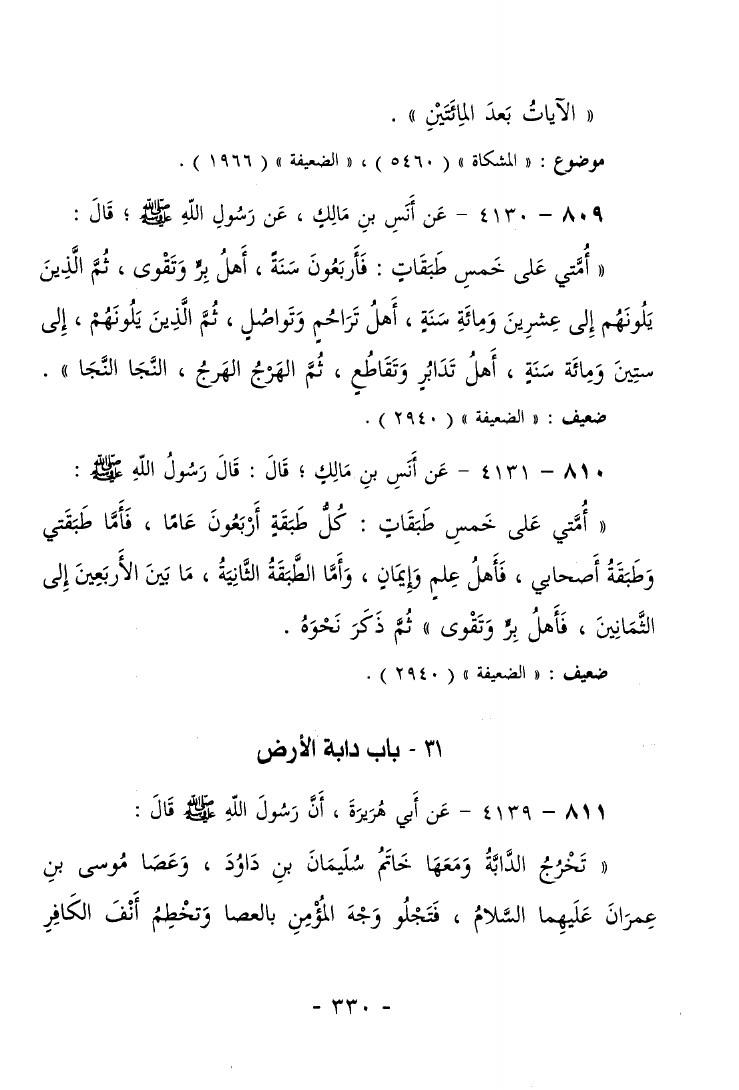 « الآياتُ بَعدَ المِائَتَيْنِ » .
موضوع : « المشكاة » ( ٥٤٦٠ ) ، « الضعيفة » ( ١٩٦٦ ) .
٨٠٩ – ٤١٣٠ – عَن أَنَسِ بنِ مَالِكٍ ، عَن رَسُولِ اللّهِ ﷺ ؛ قَالَ :
« أُمَّتي عَلى خَمسِ طَبَقَاتٍ : فَأَربَعُونَ سَنَةً ، أَهلُ بِرٍّ وَتَقْوى ، ثُمَّ الَّذِينَ
يَلُونَهُم إِلى عِشرِينَ وَمِائَةِ سَنَةٍ ، أَهلُ تَرَاحُمٍ وَتَواصُلٍ ، ثُمَّ الَّذِينَ يَلُونَهُمْ ، إِلى
ستِينَ وَمِائَة سَنَةٍ ، أَهلُ تَدَابُرٍ وَتَقَاطُعٍ ، ثُمَّ الهَرْجُ الهَرجُ ، النَّجَا النَّجَا » .
ضعيف : « الضعيفة » ( ٢٩٤٠ ) .
٨١٠ – ٤١٣١ – عَن أَنَسِ بنِ مَالِكٍ ؛ قَالَ : قَالَ رَسُولُ اللّهِ ﷺ :
« أُمَّتي عَلى خَمسِ طَبَقَاتٍ : كُلُّ طَبَقَةٍ أَرْبَعُونَ عَامًا ، فَأَمَّا طَبَقَتي
وَطَبَقَةُ أَصحابي ، فَأَهلُ عِلمٍ وَإِيمَانٍ ، وَأَمَّا الطَّبَقَةُ الثَّانِيَةُ ، مَا بَينَ الأَربَعِينَ إِلى
الثَّمَانِينَ ، فَأَهلُ بِرٍّ وَتَقْوى » ثُمَّ ذَكَرَ نَحْوَهُ .
ضعيف : « الضعيفة » ( ٢٩٤٠ ) .
٣١ - باب دابة الأرض
٨١١ – ٤١٣٩ – عَن أَبي هُرَيرَةَ ، أَنَّ رَسُولَ اللّهِ ﷺ قَالَ :
« تَخْرُجُ الدَّابَّةُ وَمَعَهَا خَاتَمُ سُلَيمَانَ بنِ دَاوُدَ ، وَعَصَا مُوسى بنِ
عِمرَانَ عَلَيهِما السَّلامُ ، فَتَجْلُو وَجْهَ المُؤْمِنِ بالعصا وَتَخْطِمُ أَنْفَ الكَافِرِ
- ٣٣٠ -